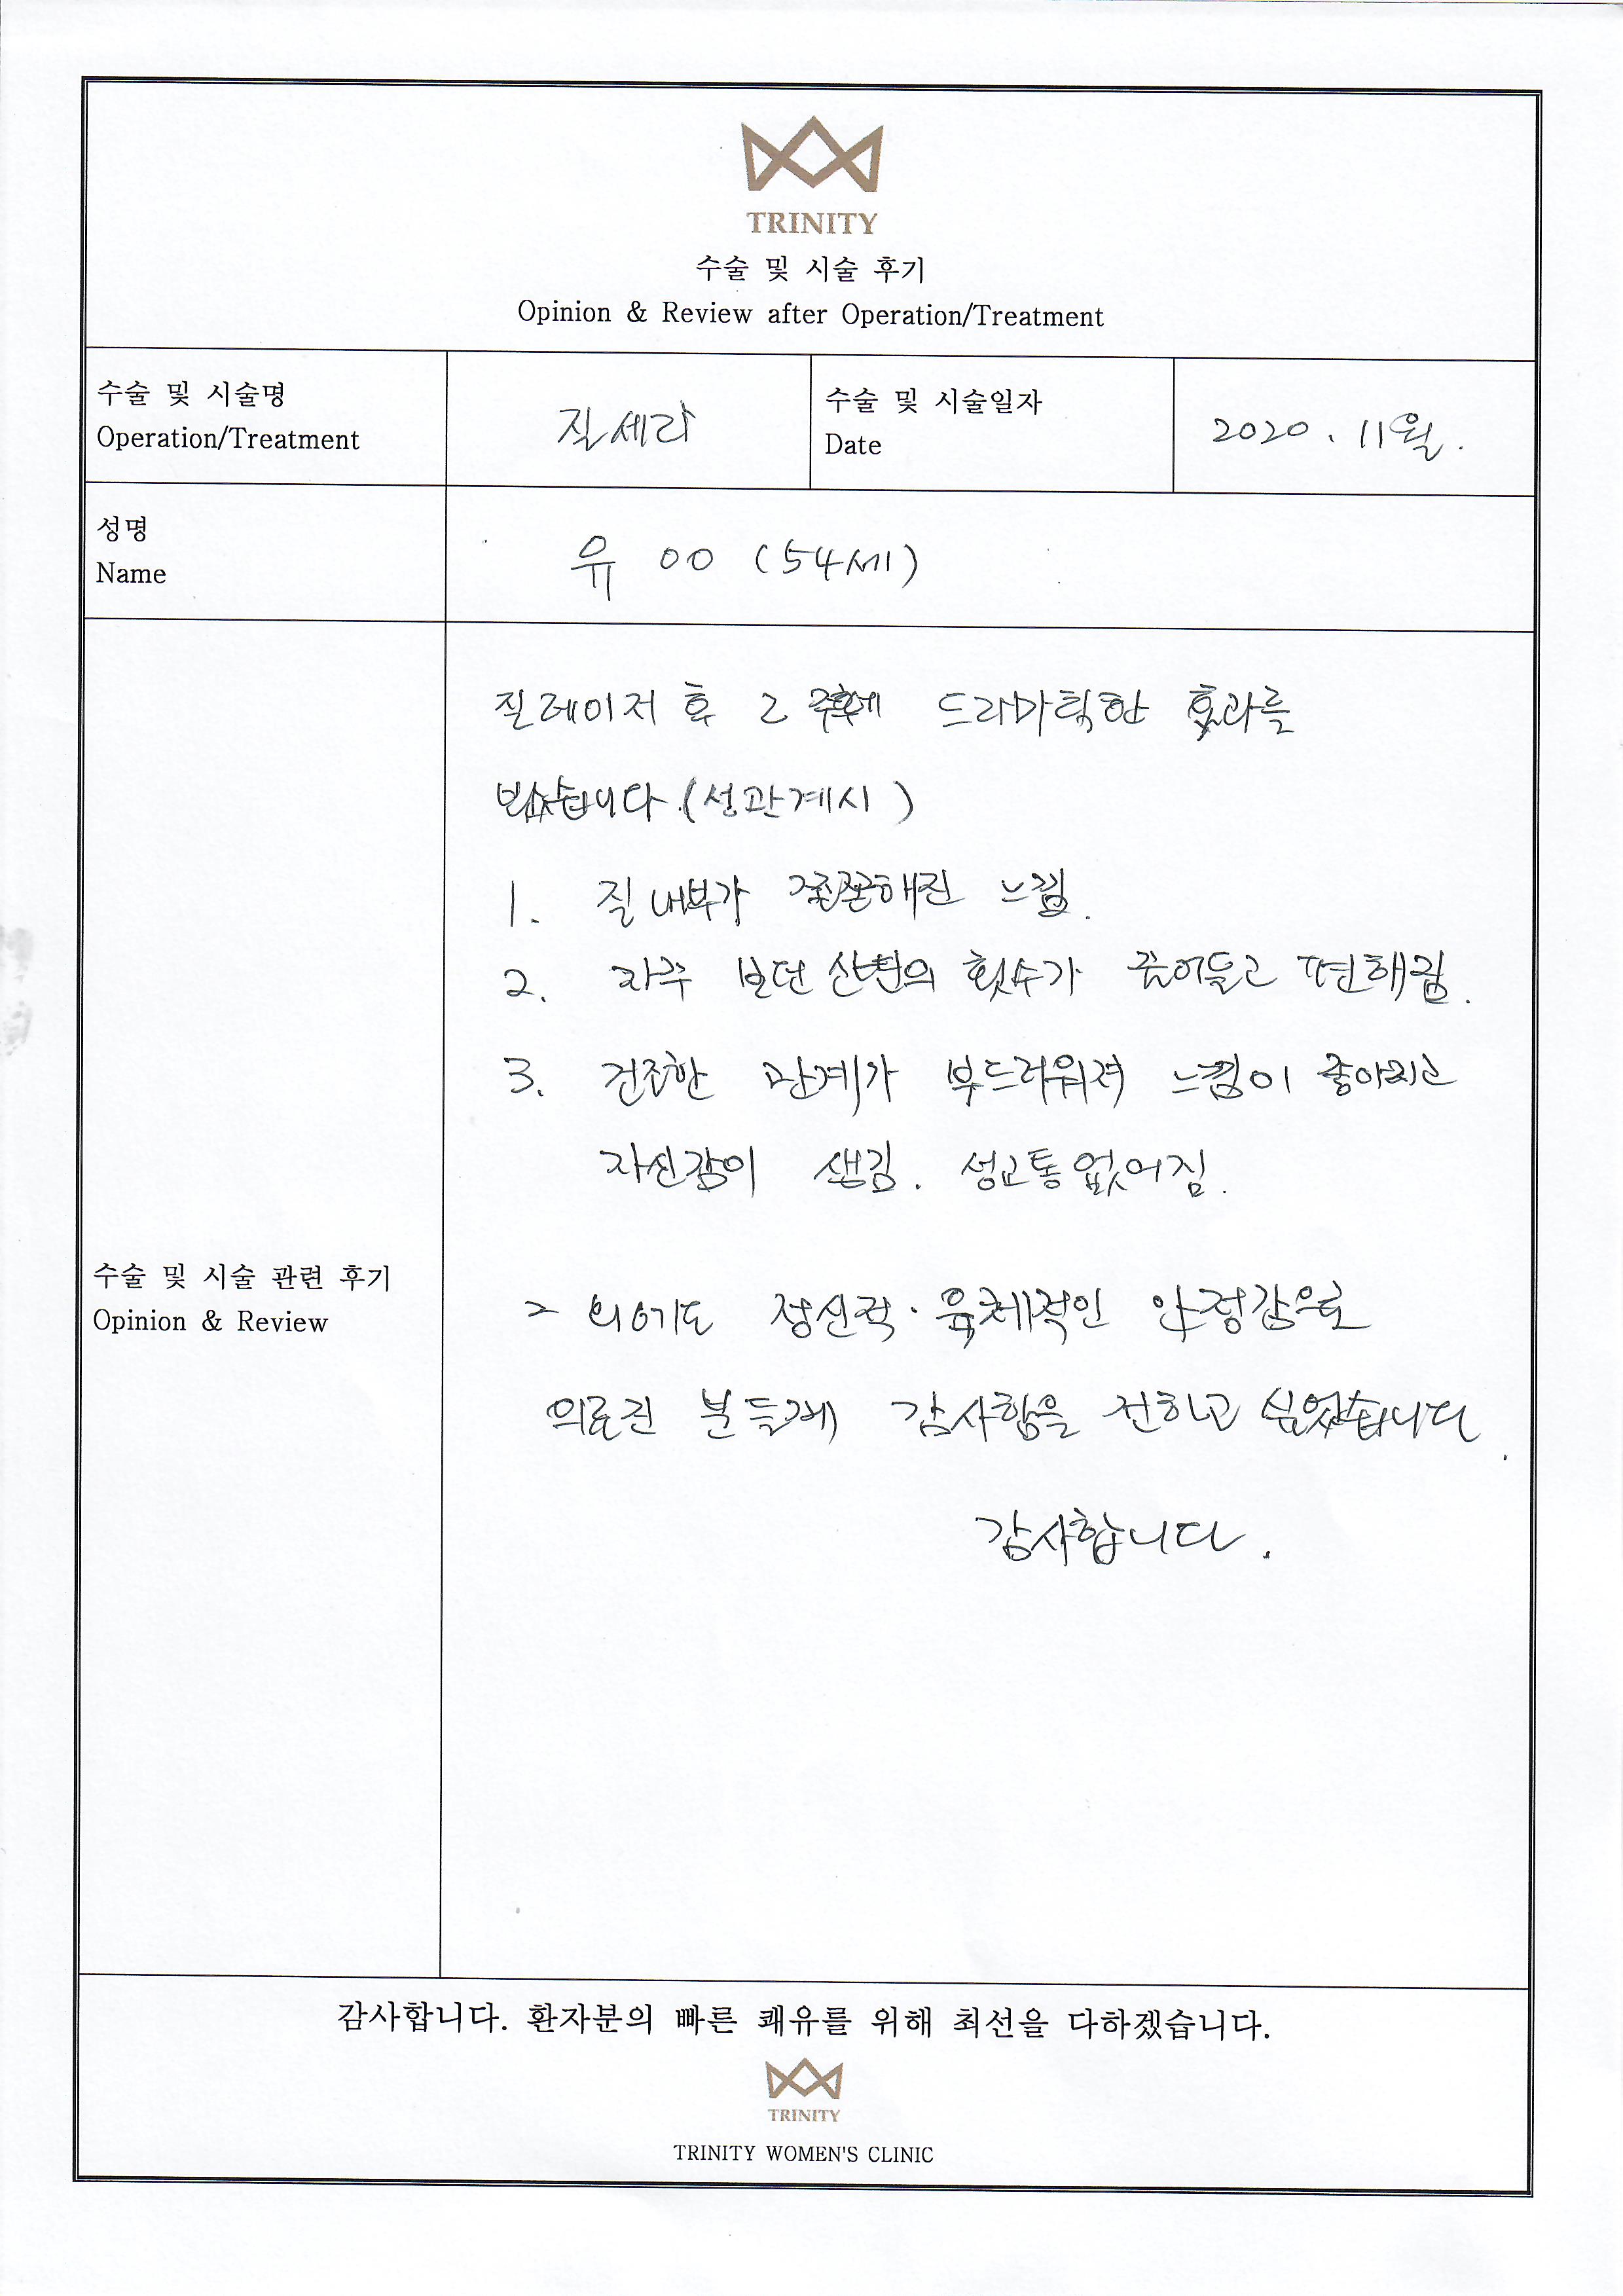 TRINITY
수술 및 시술 후기
Opinion & Review after Operation/Treatment
수술 및 시술명
Operation/Treatment
질세라
수술 및 시술일자
Date
2020. 11월.
성명
Name
유 OO (54세)
수술 및 시술 관련 후기
Opinion & Review
질레이저 후 2주후에 드라마틱한 효과를
보았습니다.(성관계시)
1. 질 내부가 쫀쫀해진 느낌.
2. 자주 보던 산변의 횟수가 줄어들고 편해짐.
3. 건조한 관계가 부드러워져 느낌이 좋아지고
자신감이 생김. 성교통 없어짐.
그 외에도 정신적·육체적인 안정감으로
의료진 분들께 감사함을 전하고 싶었습니다.
감사합니다.
감사합니다. 환자분의 빠른 쾌유를 위해 최선을 다하겠습니다.
TRINITY
TRINITY WOMEN'S CLINIC